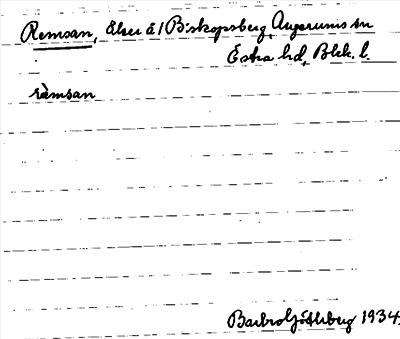 Remsan, Åker å 1 Biskopsberg, Augerums sn
Östra hd, Blek. l.
ràmsan
Barbro Göthberg 1934.